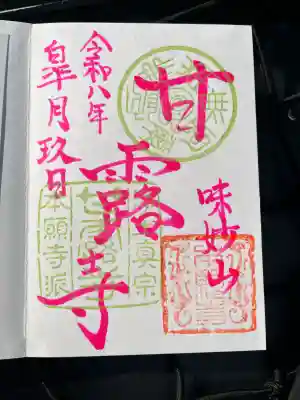 味妙山
甘露寺
令和八年
皐月玖日
真宗
本願寺派